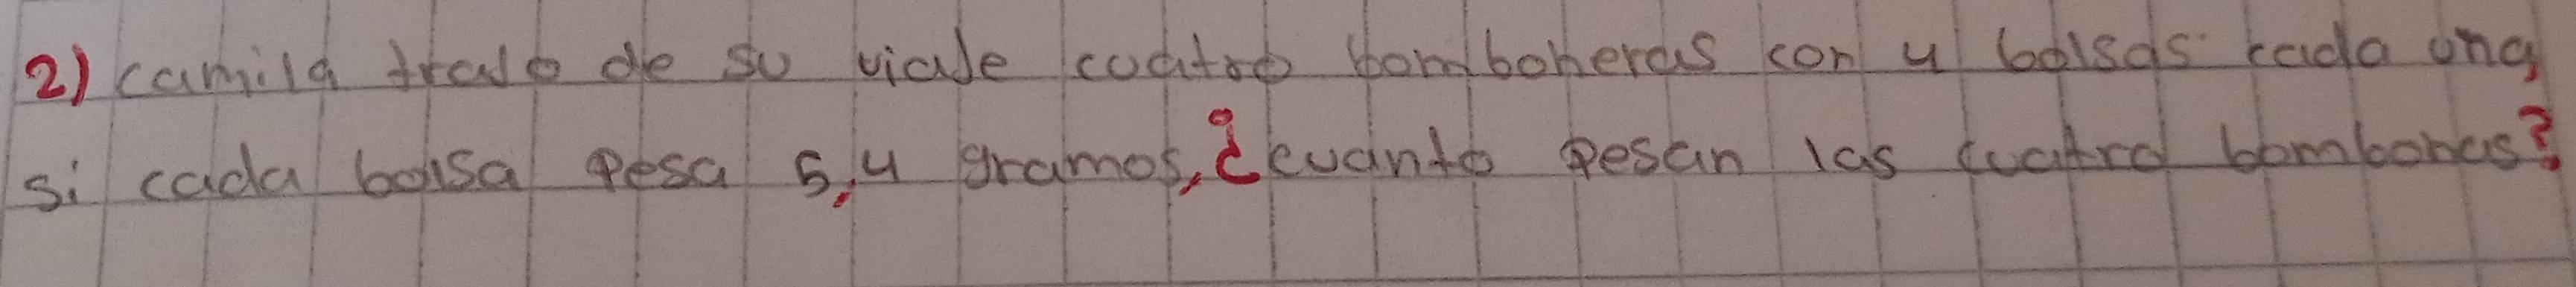 2) camila trajo de su viaje cuatro bomboneras con 4 bolsas cada una,
si cada bolsa pesa 5,4 gramos, ¿cuanto pesan las cuatro bombonas?